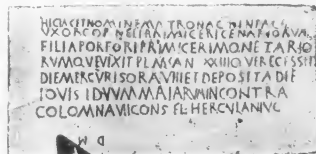 HIC IACET NOMINE MATRONA C F IN PACE
UXOR CORNELI PRIMICERI CENARIORUM
FILIA PORFORI PRIMICERI MONETARIO
RUM QUE VIXIT PL M AN XXIII QUE RECESSIT
DIE MERCURIS ORA VIII ET DEPOSITA DIE
IOVIS IDUUM MAIARUM IN CONTRA
COLOMNA VII CONS FL HERCULANI VC
D M